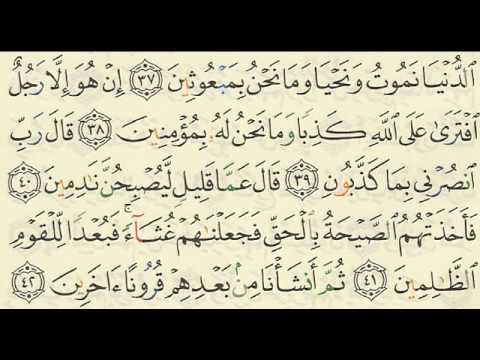 ٱلدُّنْيَا نَمُوتُ وَنَحْيَا وَمَا نَحْنُ بِمَبْعُوثِينَ ٣٧ إِنْ هُوَ إِلَّا رَجُلٌ
ٱفْتَرَىٰ عَلَى ٱللَّهِ كَذِبًا وَمَا نَحْنُ لَهُۥ بِمُؤْمِنِينَ ٣٨ قَالَ رَبِّ
ٱنصُرْنِي بِمَا كَذَّبُونِ ٣٩ قَالَ عَمَّا قَلِيلٍ لَّيُصْبِحُنَّ نَٰدِمِينَ ٤٠
فَأَخَذَتْهُمُ ٱلصَّيْحَةُ بِٱلْحَقِّ فَجَعَلْنَٰهُمْ غُثَآءً ۚ فَبُعْدًا لِّلْقَوْمِ
ٱلظَّٰلِمِينَ ٤١ ثُمَّ أَنشَأْنَا مِنۢ بَعْدِهِمْ قُرُونًا ءَاخَرِينَ ٤٢